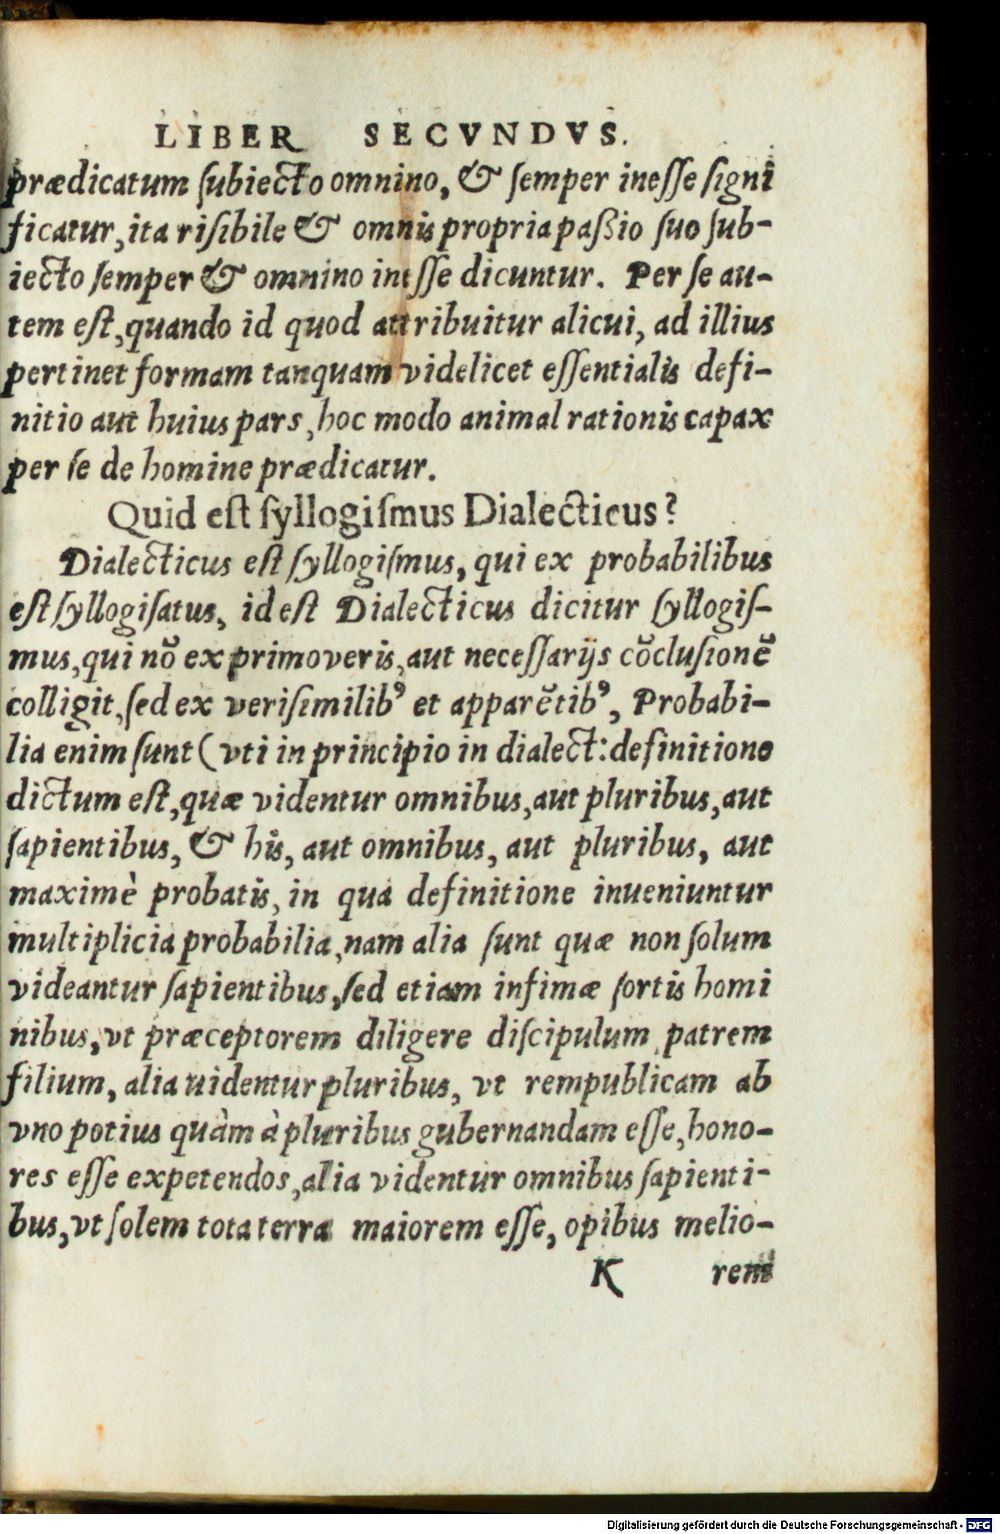 LIBER SECVNDVS.
prædicatum ſubiecto omnino, & ſemper ineſſe ſigni
ficatur, ita riſibile & omnis propria paßio ſuo ſub-
iecto ſemper & omnino ineſſe dicuntur. Per ſe au-
tem eſt, quando id quod attribuitur alicui, ad illius
pertinet formam tanquam videlicet eſſentialis defi-
nitio aut huius pars, hoc modo animal rationis capax
per ſe de homine prædicatur.
Quid eſt ſyllogiſmus Dialecticus?
Dialecticus eſt ſyllogiſmus, qui ex probabilibus
eſt ſyllogiſatus, id eſt Dialecticus dicitur ſyllogiſ-
mus, qui nō ex primoveris, aut neceſſarijs cōcluſionē
colligit, ſed ex veriſimilibꝰ et apparētibꝰ, Probabi-
lia enim ſunt (vti in principio in dialect: definitione
dictum eſt, quæ videntur omnibus, aut pluribus, aut
ſapientibus, & his, aut omnibus, aut pluribus, aut
maximè probatis, in qua definitione inueniuntur
multiplicia probabilia, nam alia ſunt quæ non ſolum
videantur ſapientibus, ſed etiam infimæ ſortis homi
nibus, vt præceptorem diligere diſcipulum, patrem
filium, alia uidentur pluribus, vt rempublicam ab
vno potius quàm à pluribus gubernandam eſſe, hono-
res eſſe expetendos, alia videntur omnibus ſapienti-
bus, vt ſolem tota terra maiorem eſſe, opibus melio-
K rem
Digitalisierung gefördert durch die Deutsche Forschungsgemeinschaft - DFG